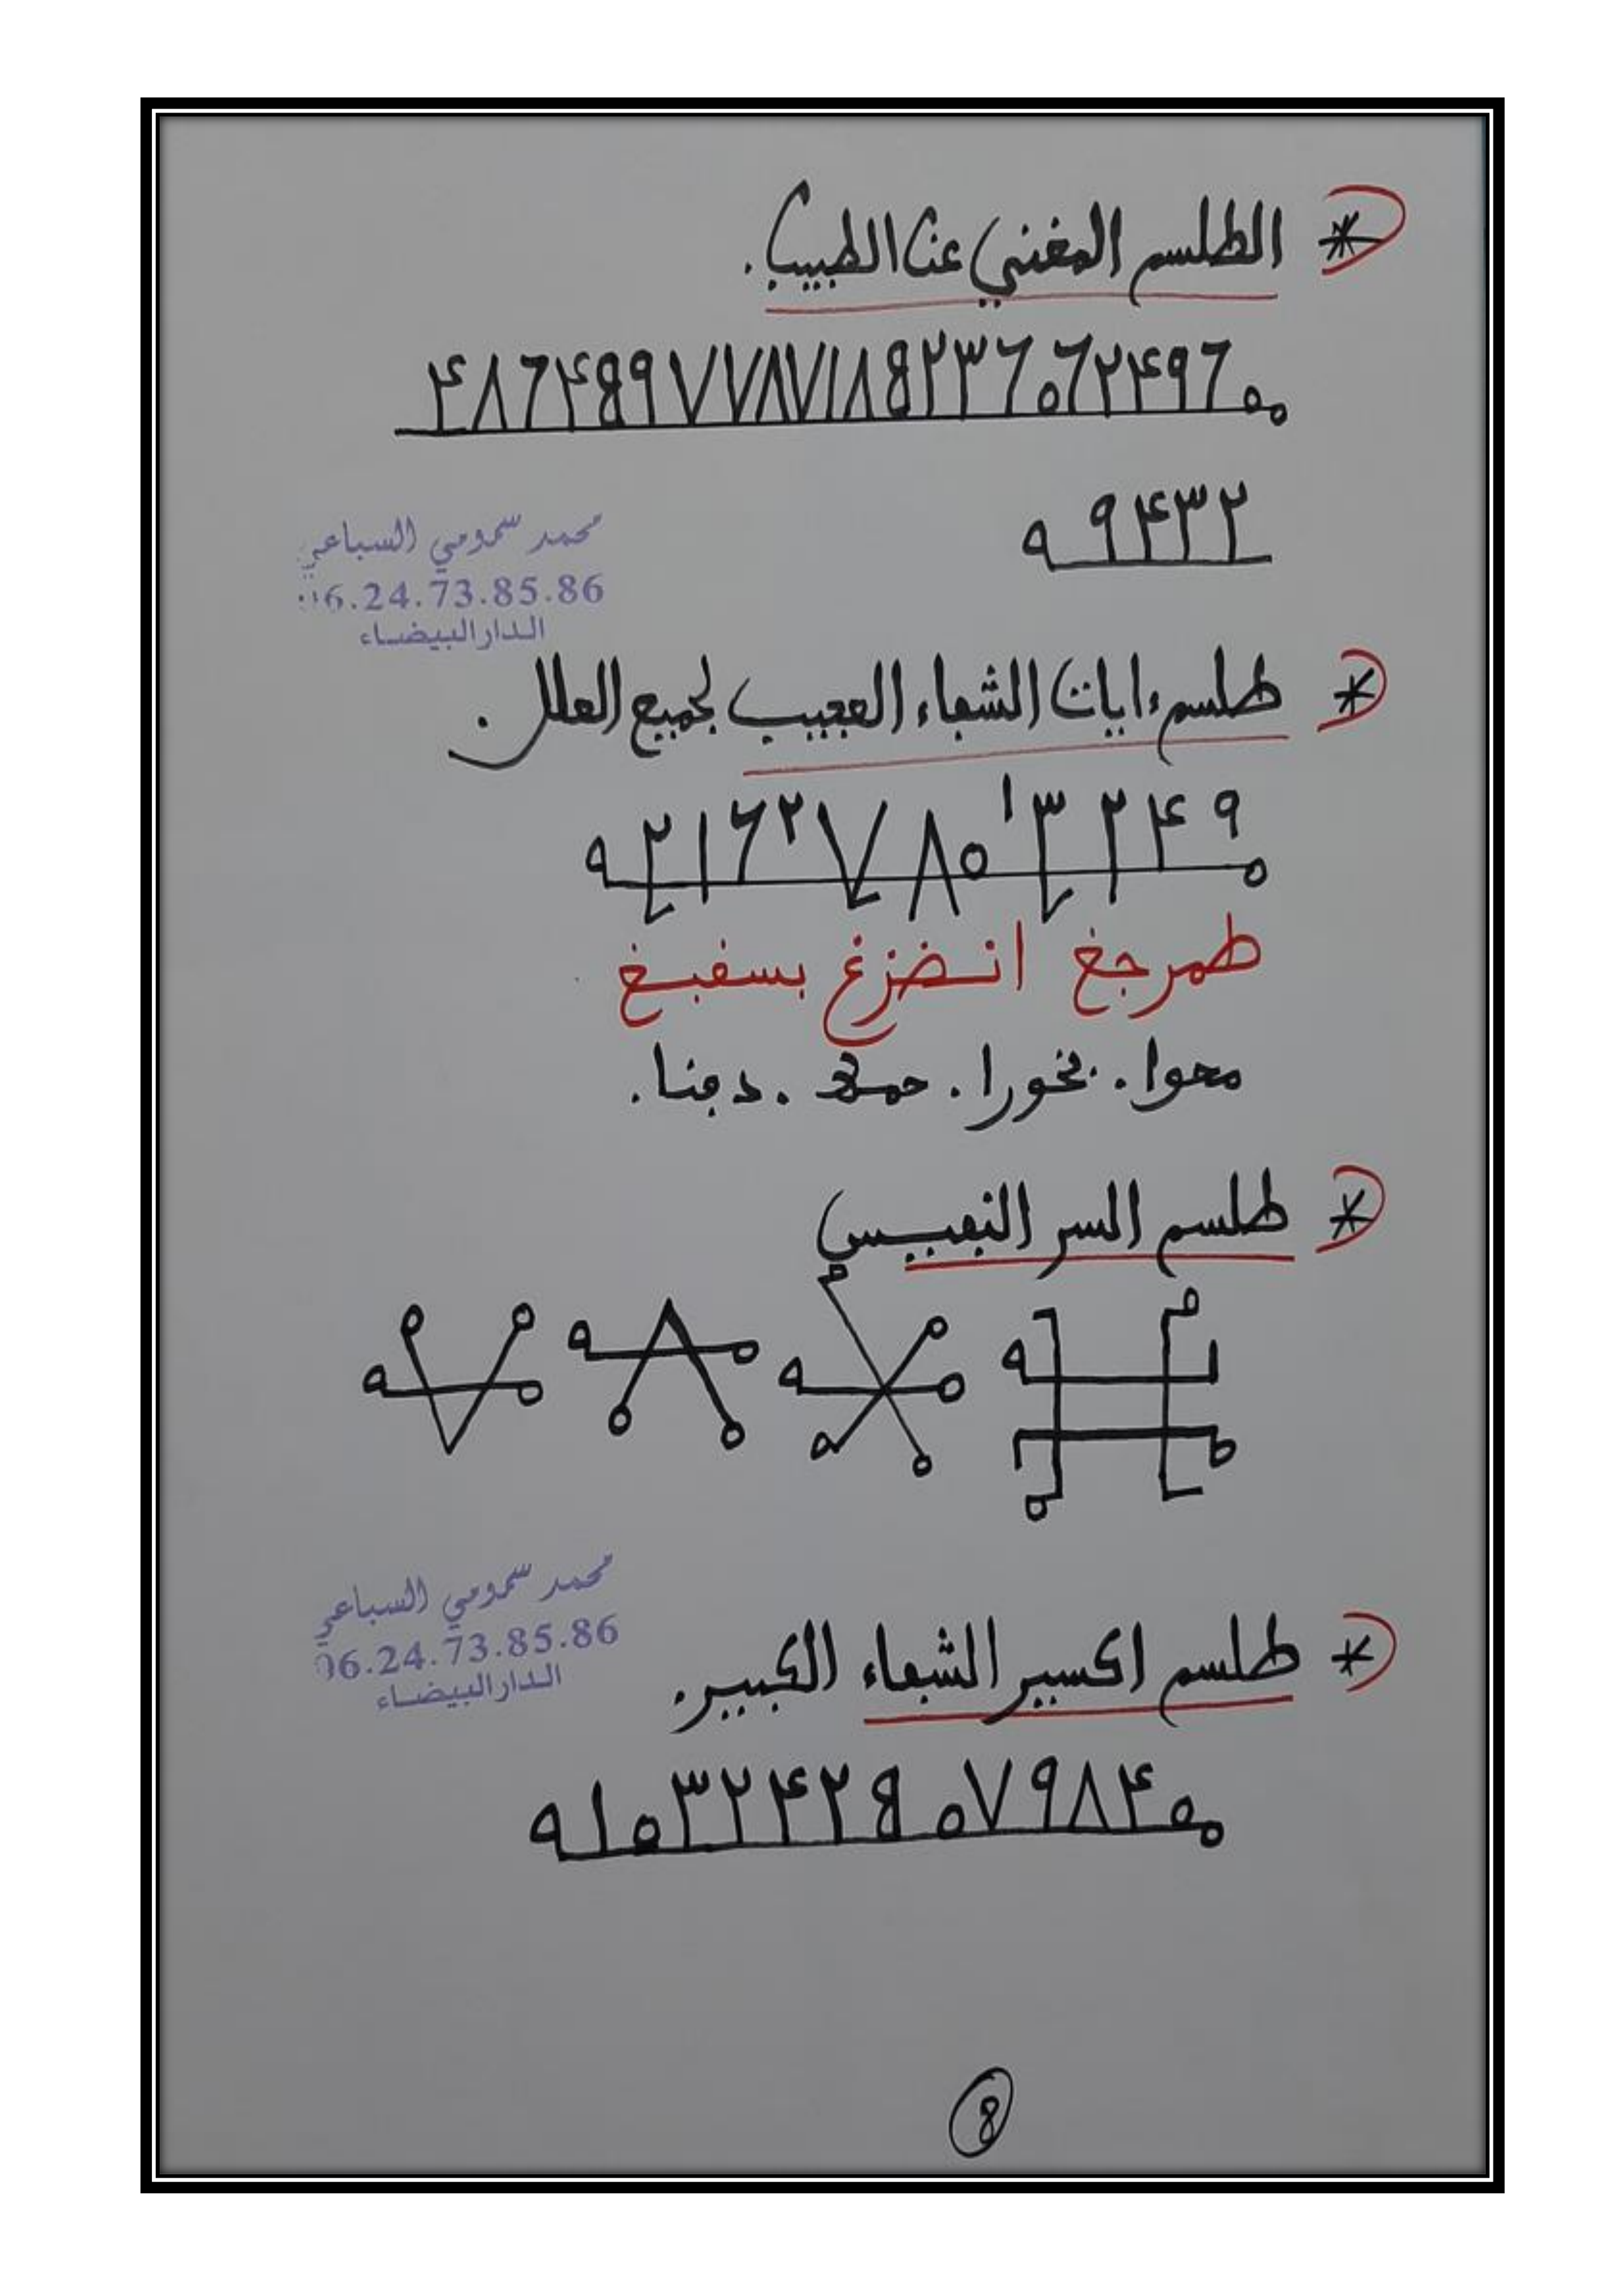 * الطلسم المغني عن الطبيب.
٤٨٦٤٩٩٧٧٨٧١٨٩٢٣٦٥٦٢٤٩٦٥
ه٩٤٣٢
محمد سمومي السباعي
06.24.73.85.86
الدار البيضاء
* طلسم ءايات الشفاء العجيب لجميع العلل.
طمرجغ انضزغ بسفبغ
محوا. بخورا. حملا. دفنا.
* طلسم السر النفيس
محمد سمومي السباعي
06.24.73.85.86
الدار البيضاء
* طلسم اكسير الشفاء الكبير.
8